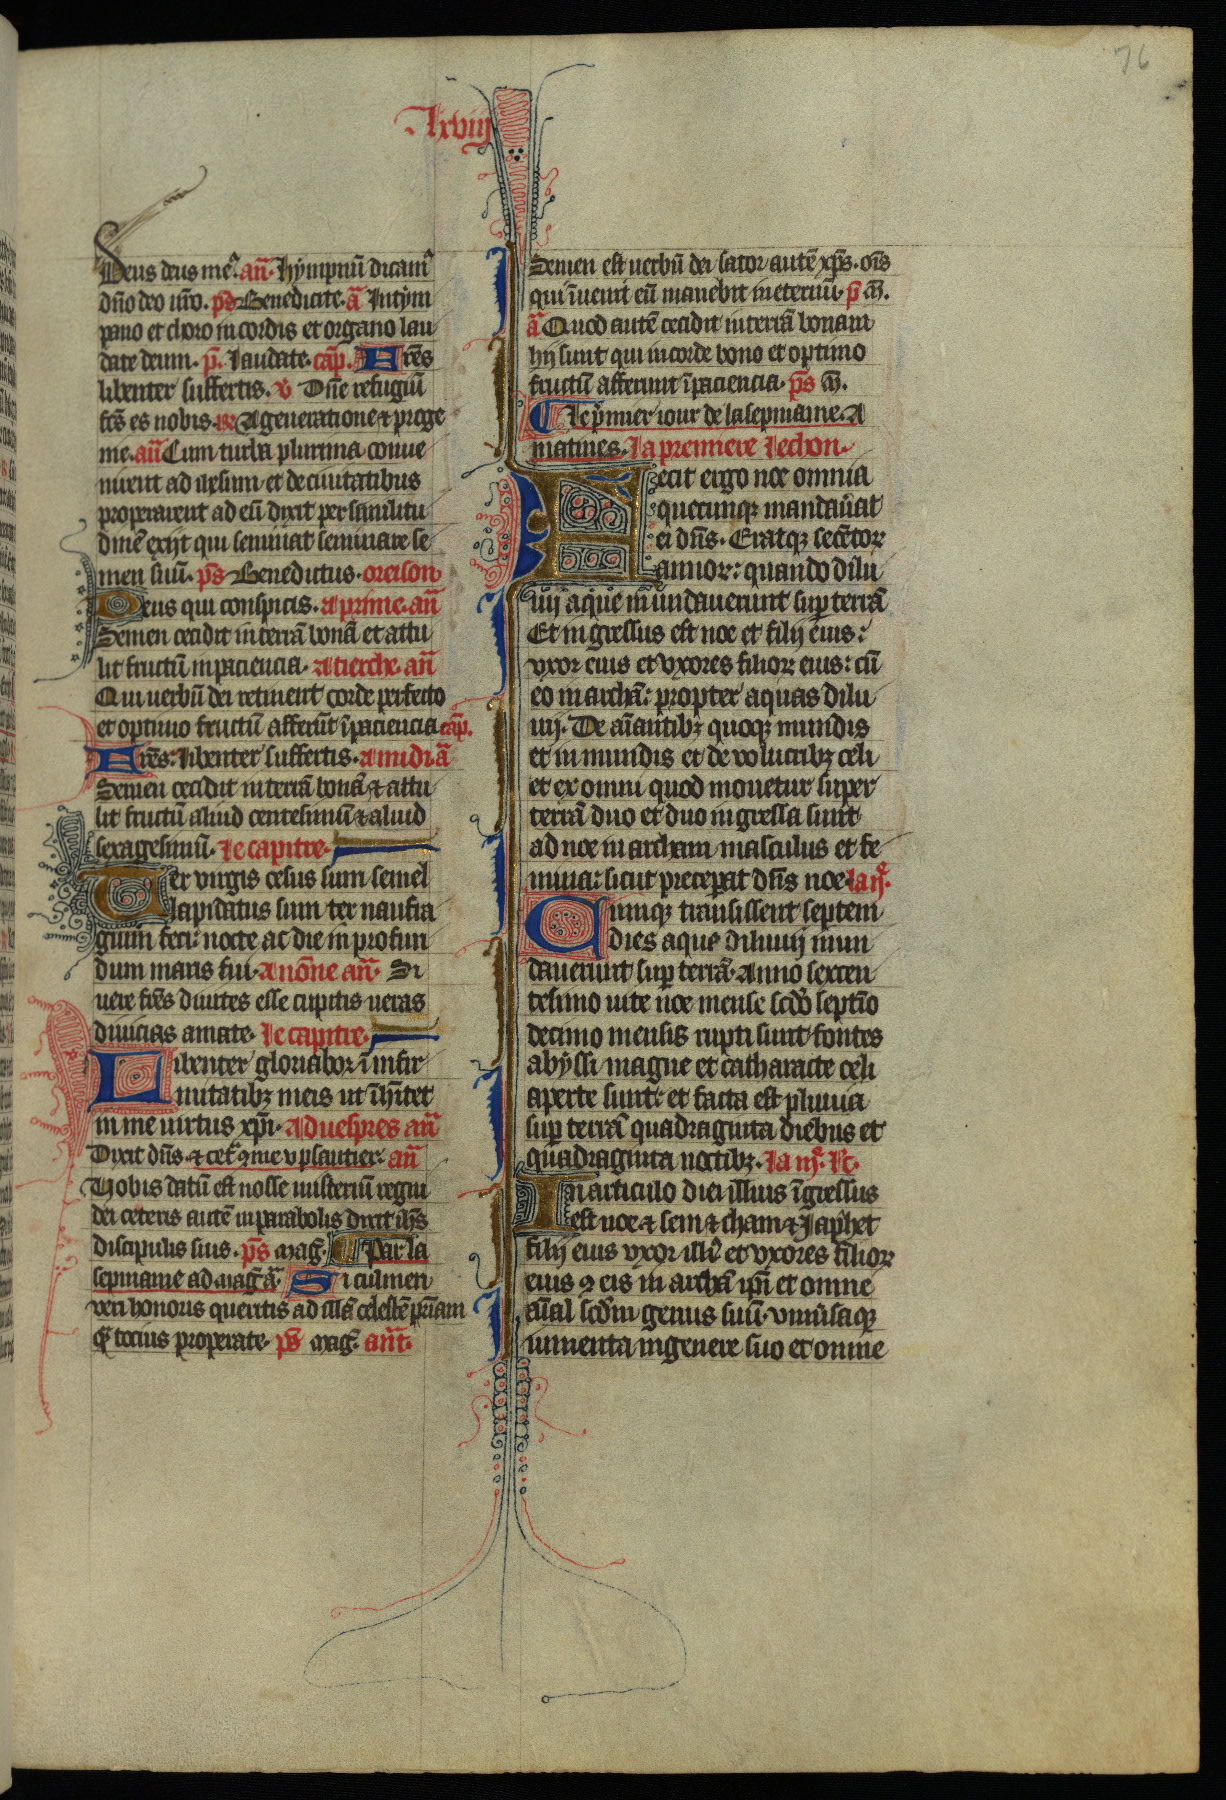 76
lxviij
Deus deus me9. an̄. Hympnū dicam9
dn̄o deo nr̄o. ps Benedicite. ā Intym
pano et choro in cordis et organo lau
date deum. p̄. laudate. cap̄. Frēs
libenter suffertis. v Dn̄e refugiū
fc̄s es nobis. R A generatione & proge
nie. an̄ Cum turba plurima conue
nirent ad ihesum et de ciuitatibus
properarent ad eū dixit per similitu
dinē exijt qui seminat seminare se
men suū. p̄s Benedictus. oreison
Deus qui conspicis. a prime. an̄
Semen cecidit in terrā bonā et attu
lit fructū in paciencia. a tierche. an̄
Qui uerbū dei retinent corde perfecto
et optimo fructū afferūt ī paciencia cap̄.
Frēs: libenter suffertis. a midi ā
Semen cecidit in terrā bonā & attu
lit fructū aliud centesimū & aliud
sexagesimū. le capitre.
Ter virgis cesus sum semel
lapidatus sum ter naufra
gium feci: nocte ac die in profun
dum maris fui. a nōne an̄. Si
uere frēs diuites esse cupitis ueras
diuicias amate. le capitre.
Libenter gloriabor ī infir
mitatibz meis ut īhītet
in me uirtus xp̄i. a duespres an̄
Dixit dn̄s & cet' 9me v psautier. an̄
Uobis datū est nosse misteriū regni
dei ceteris autē in parabolis dixit ih̄s
discipulis suis. p̄s maḡ. Par la
sepmaine ad maḡ ā. Si culmen
veri honoris queritis ad illā celestē pr̄iam
q̄ tocius properate. ps maḡ. ant̄.
Semen est uerbū dei sator autē xp̄s. om̄s
qui īuenit eū manebit in eternū. p m̄.
ā Quod autē cecidit in terrā bonam
hij sunt qui in corde bono et optimo
fructū afferunt ī paciencia. p̄s m̄.
Le p̄mier iour de la sepmaine. A
matines. la premiere lechon.
Fecit ergo noe omnia
quecunqz mandauerat
ei dn̄s. Eratqz sexcētor
annor: quando dilu
uij aque inundauerunt sup terrā
Et ingressus est noe et filij eius:
vxor eius et vxores filior eius: cū
eo in archā: propter aquas dilu
uij. De aīantibz quoqz mundis
et in mundis et de volucribz celi
et ex omni quod mouetur super
terrā duo et duo ingressa sunt
ad noe in archam masculus et fe
mina: sicut preceperat dn̄s noe. la ij e.
Cumqz transissent septem
dies aque diluuij inun
dauerunt sup terrā. Anno sexcen
tesimo uite noe mense scdō septīo
decimo mensis rupti sunt fontes
abyssi magne et catharacte celi
aperte sunt: et facta est pluuia
sup terrā quadraginta diebus et
quadraginta noctibz. la iij e. lc̄.
In articulo diei illius īgressus
est noe & sem & cham & Japhet
filij eius vxor illi9 et vxores filior
eius 9 eis in archā ipī et omne
aīal scdm̄ genus suū. vniūsaqz
iumenta in genere suo et omne